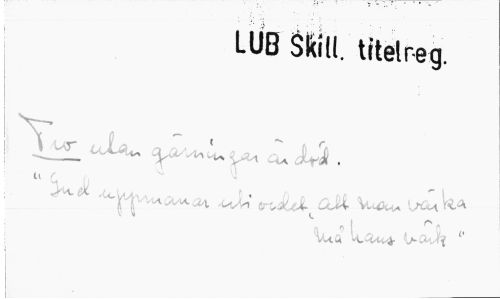 LUB Skill. titelreg.
Tro utan gärningar är död.
"Gud uppmanar uti ordet, att man värka
må hans värk"